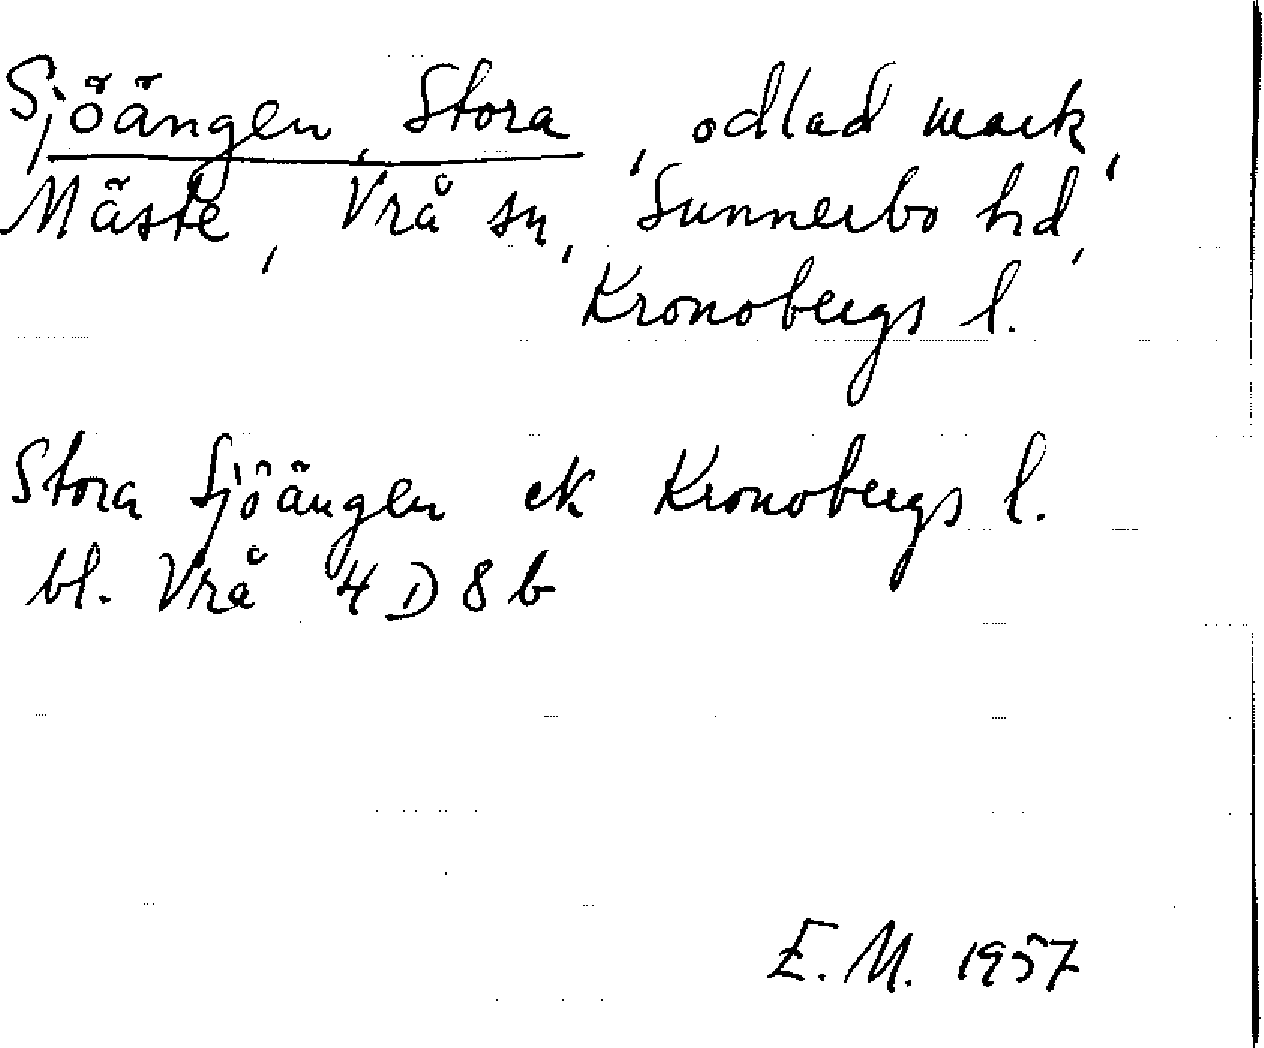 Sjöängen, Stora, odlad mark,
Mäste, Vrå sn, Sunnerbo hd,
Kronobergs l.
Stora Sjöängen ek Kronobergs l.
bl. Vrå 4 D 8 b
E. M. 1957